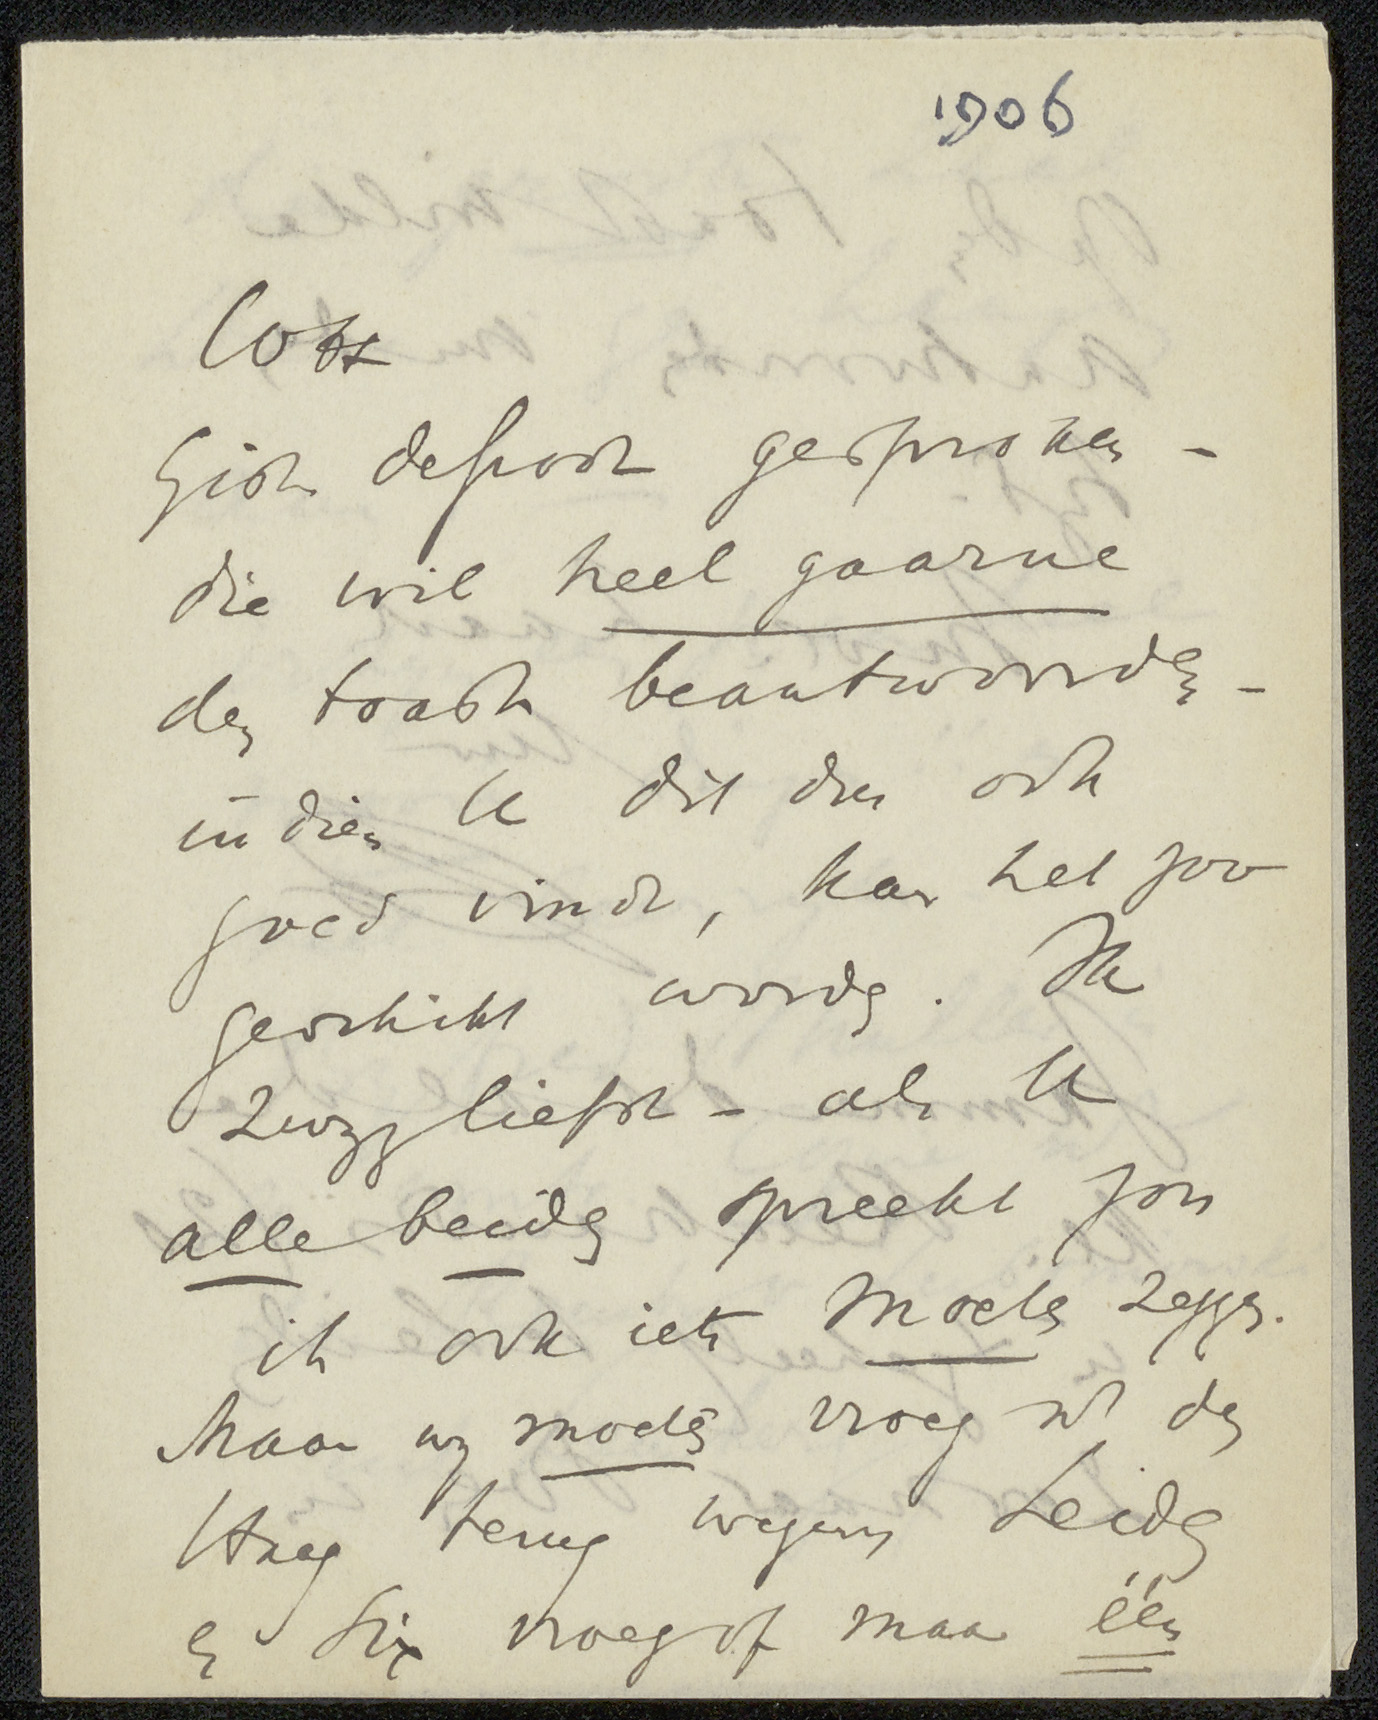 1906
Gist. defact gesproken -
die wil heel gaarne
den toast beantwoorden -
indien U dit dan ook
goed vindt, kan het zoo
geschikt worden. Ik
zweeg liefst - als U
alle beiden spreekt zou
ik ook iets moeten zeggen.
Maar wij moeten vroeg uit den
Haag terug wegens Leiden
en Six vroeg of maar één